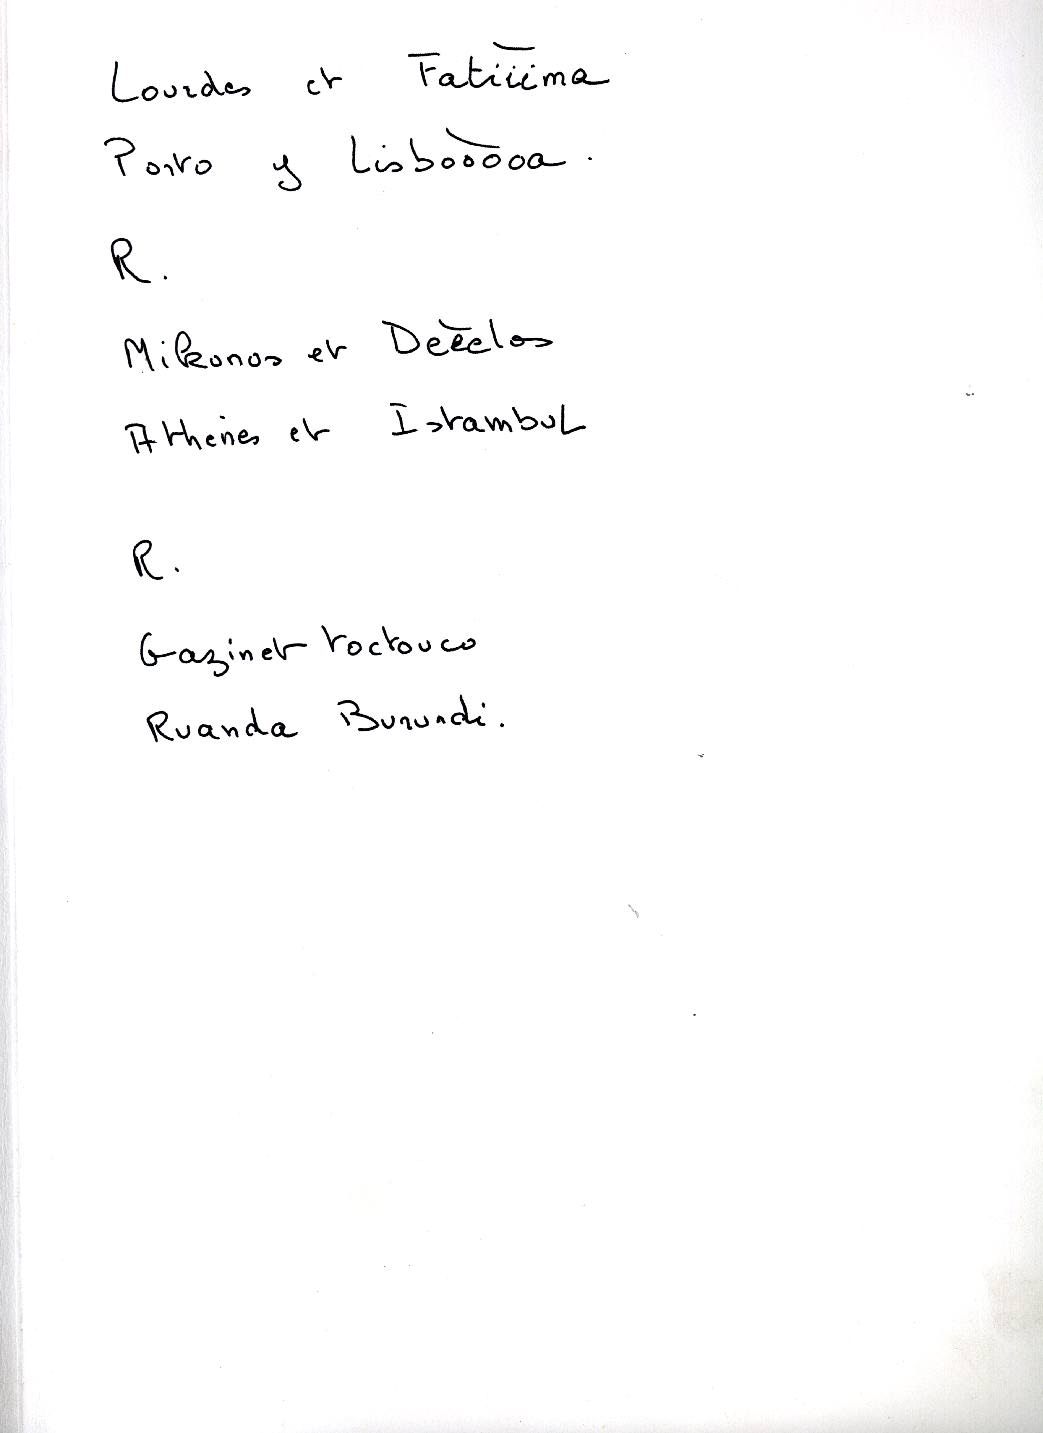 Lourdes et Fatiiima
Porto y Lisbooooa.
R.
Mikonos et Deeelos
Athènes et Istambul
R.
Gazinet toctouco
Ruanda Burundi.